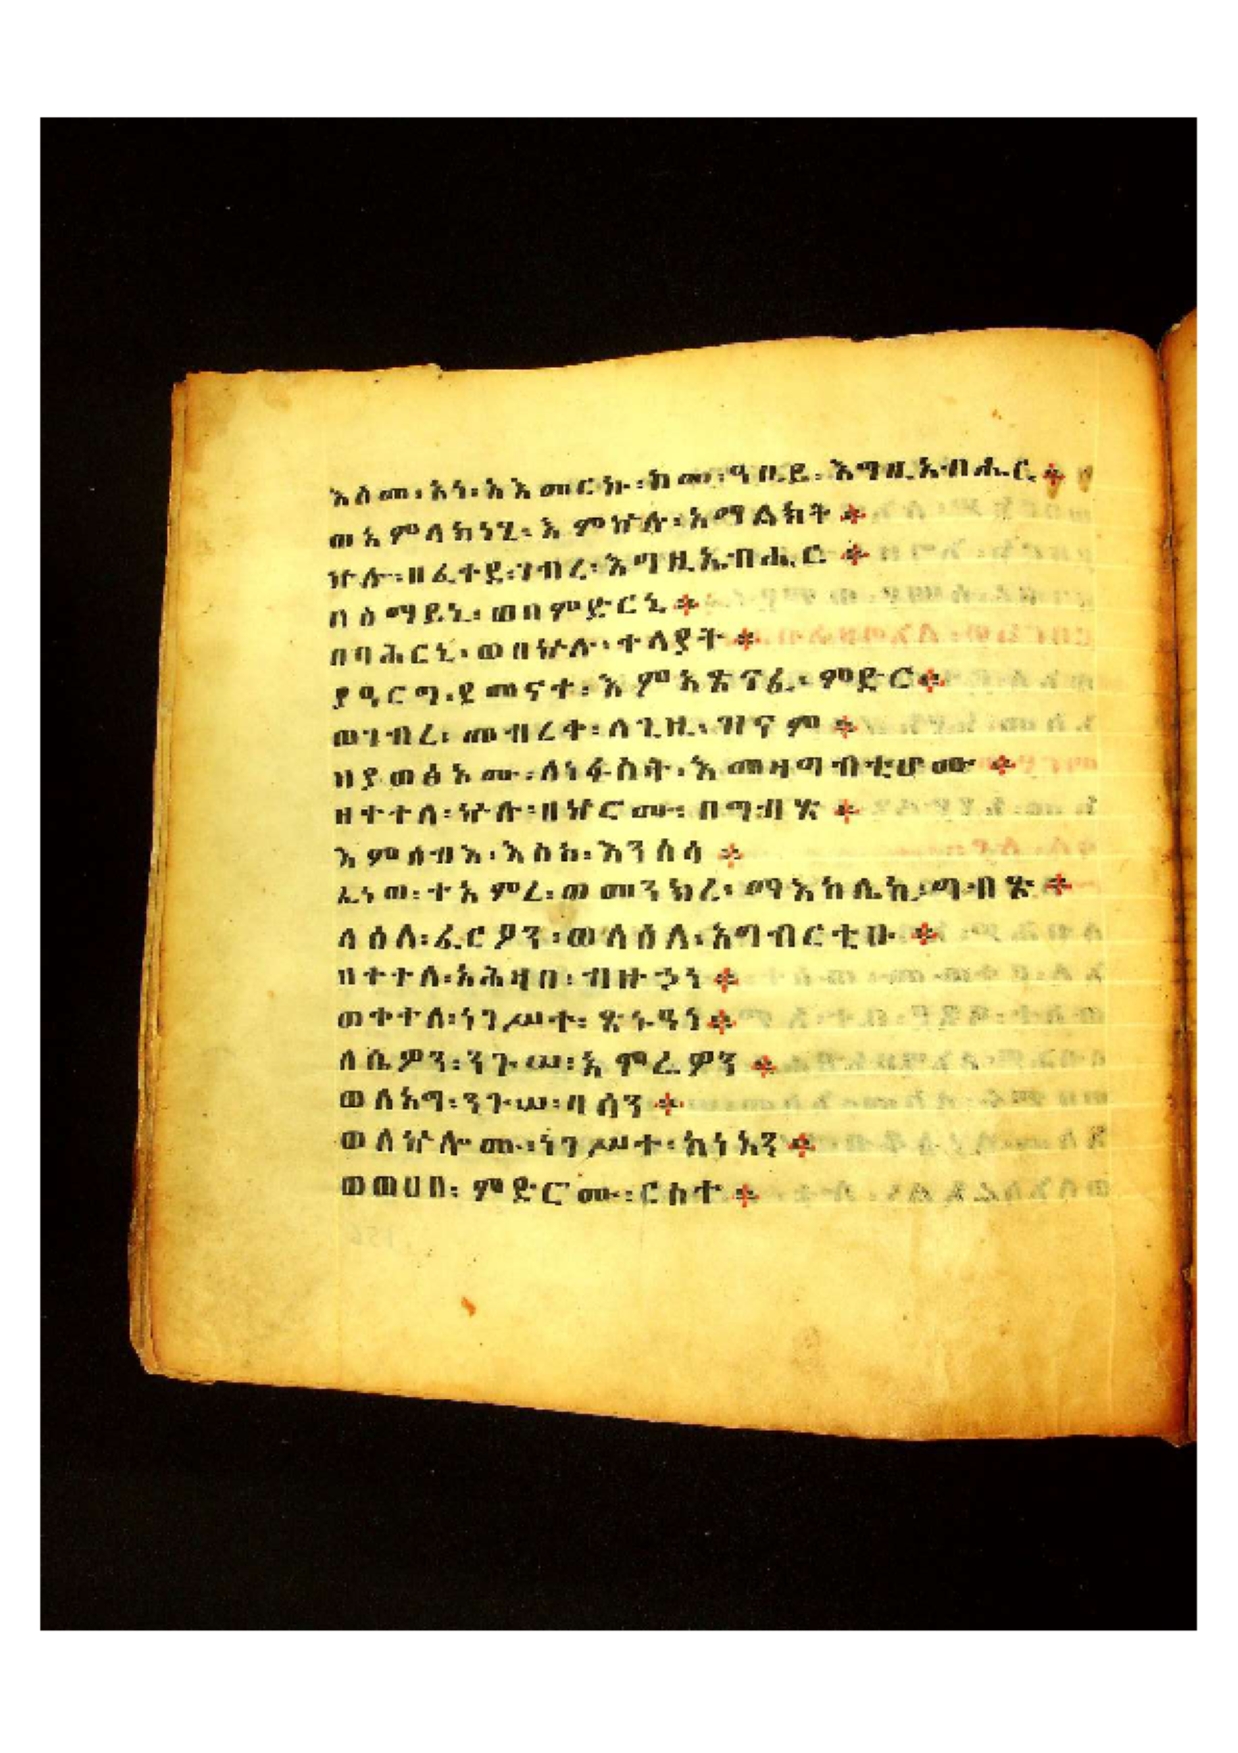 እስመ፡ አነ፡ አእመርኩ፡ ከመ፡ ዓቢይ፡ እግዚአብሔር ።
ወአምላክነሂ፡ እምኵሉ፡ አማልክት ።
ኵሉ፡ ዘፈተደ፡ ገብረ፡ እግዚአብሔር ።
በሰማይኒ፡ ወበምድርኒ ።
በባሕርኒ፡ ወበኵሉ፡ ተላያት ።
ያዓርግ፡ ደመናተ፡ እምአጽናፈ፡ ምድር ።
ወገብረ፡ መብረቀ፡ ለጊዜ፡ ዝናም ።
ዘያወፅኦሙ፡ ለነፋሳት፡ እመዛግብቲሆሙ ።
ዘቀተለ፡ ኵሉ፡ በኵሮሙ፡ በግብጽ ።
እምሰብእ፡ እስከ፡ እንስሳ ።
ፈነወ፡ ተአምረ፡ ወመንክረ፡ ማእከሌኪ፡ ግብጽ ።
ላዕለ፡ ፈርዖን፡ ወላዕለ፡ አግብርቲሁ ።
ዘቀተለ፡ አሕዛበ፡ ብዙኃነ ።
ወቀተለ፡ ነገሥተ፡ ጽኑዓነ ።
ለሴዎን፡ ንጉሠ፡ አሞሬዎን ።
ወለአግ፡ ንጉሠ፡ ባሳን ።
ወለኵሎሙ፡ ነገሥተ፡ ከነአን ።
ወወሀበ፡ ምድሮሙ፡ ርስተ ።